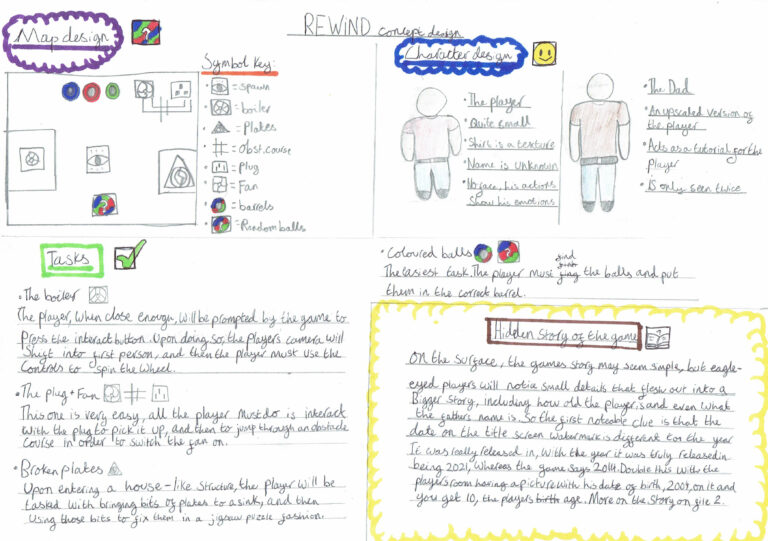 REWIND concept design
Map design
Symbol Key:
= spawn
= boiler
= Plates
= Obst.course
= Plug
= Fan
= barrels
= Random balls
Character design
• The player
• Quite small
• Shirt is a texture
• Name is unknown
• No face, his actions
Show his emotions
• The Dad
• An upscaled version of
the player
• Acts as a tutorial for the
player
• Is only seen twice
Tasks
• The boiler
The player, when close enough, will be prompted by the game to
Press the interact button. Upon doing so, the players camera will
Shift into first person, and then the player must use the
Controls to spin the wheel.
• The plug + Fan
This one is very easy, all the player must do is interact
with the plug to pick it up, and then to jump through an obstacle
Course in order to switch the fan on.
• Broken plates
Upon entering a house-like structure, the player will be
tasked with bringing bits of plates to a sink, and then
Using those bits to fix them in a jigsaw puzzle fashion.
• Coloured balls
The easiest task. The player must find the balls and put
them in the correct barrel.
Hidden Story of the game
On the surface, the games story may seem simple, but eagle-
eyed players will notice small details that flesh out into a
Bigger story, including how old the player is and even what
the fathers name is. So the first noteable clue is that the
date on the title screen watermark is different to the year
It was really released in, with the year it was truly released in
being 2021, Whereas the game says 2014. Double this with the
players room having a picture with his date of birth, 2004, on it and
you get 10, the players birth age. More on the Story on file 2.